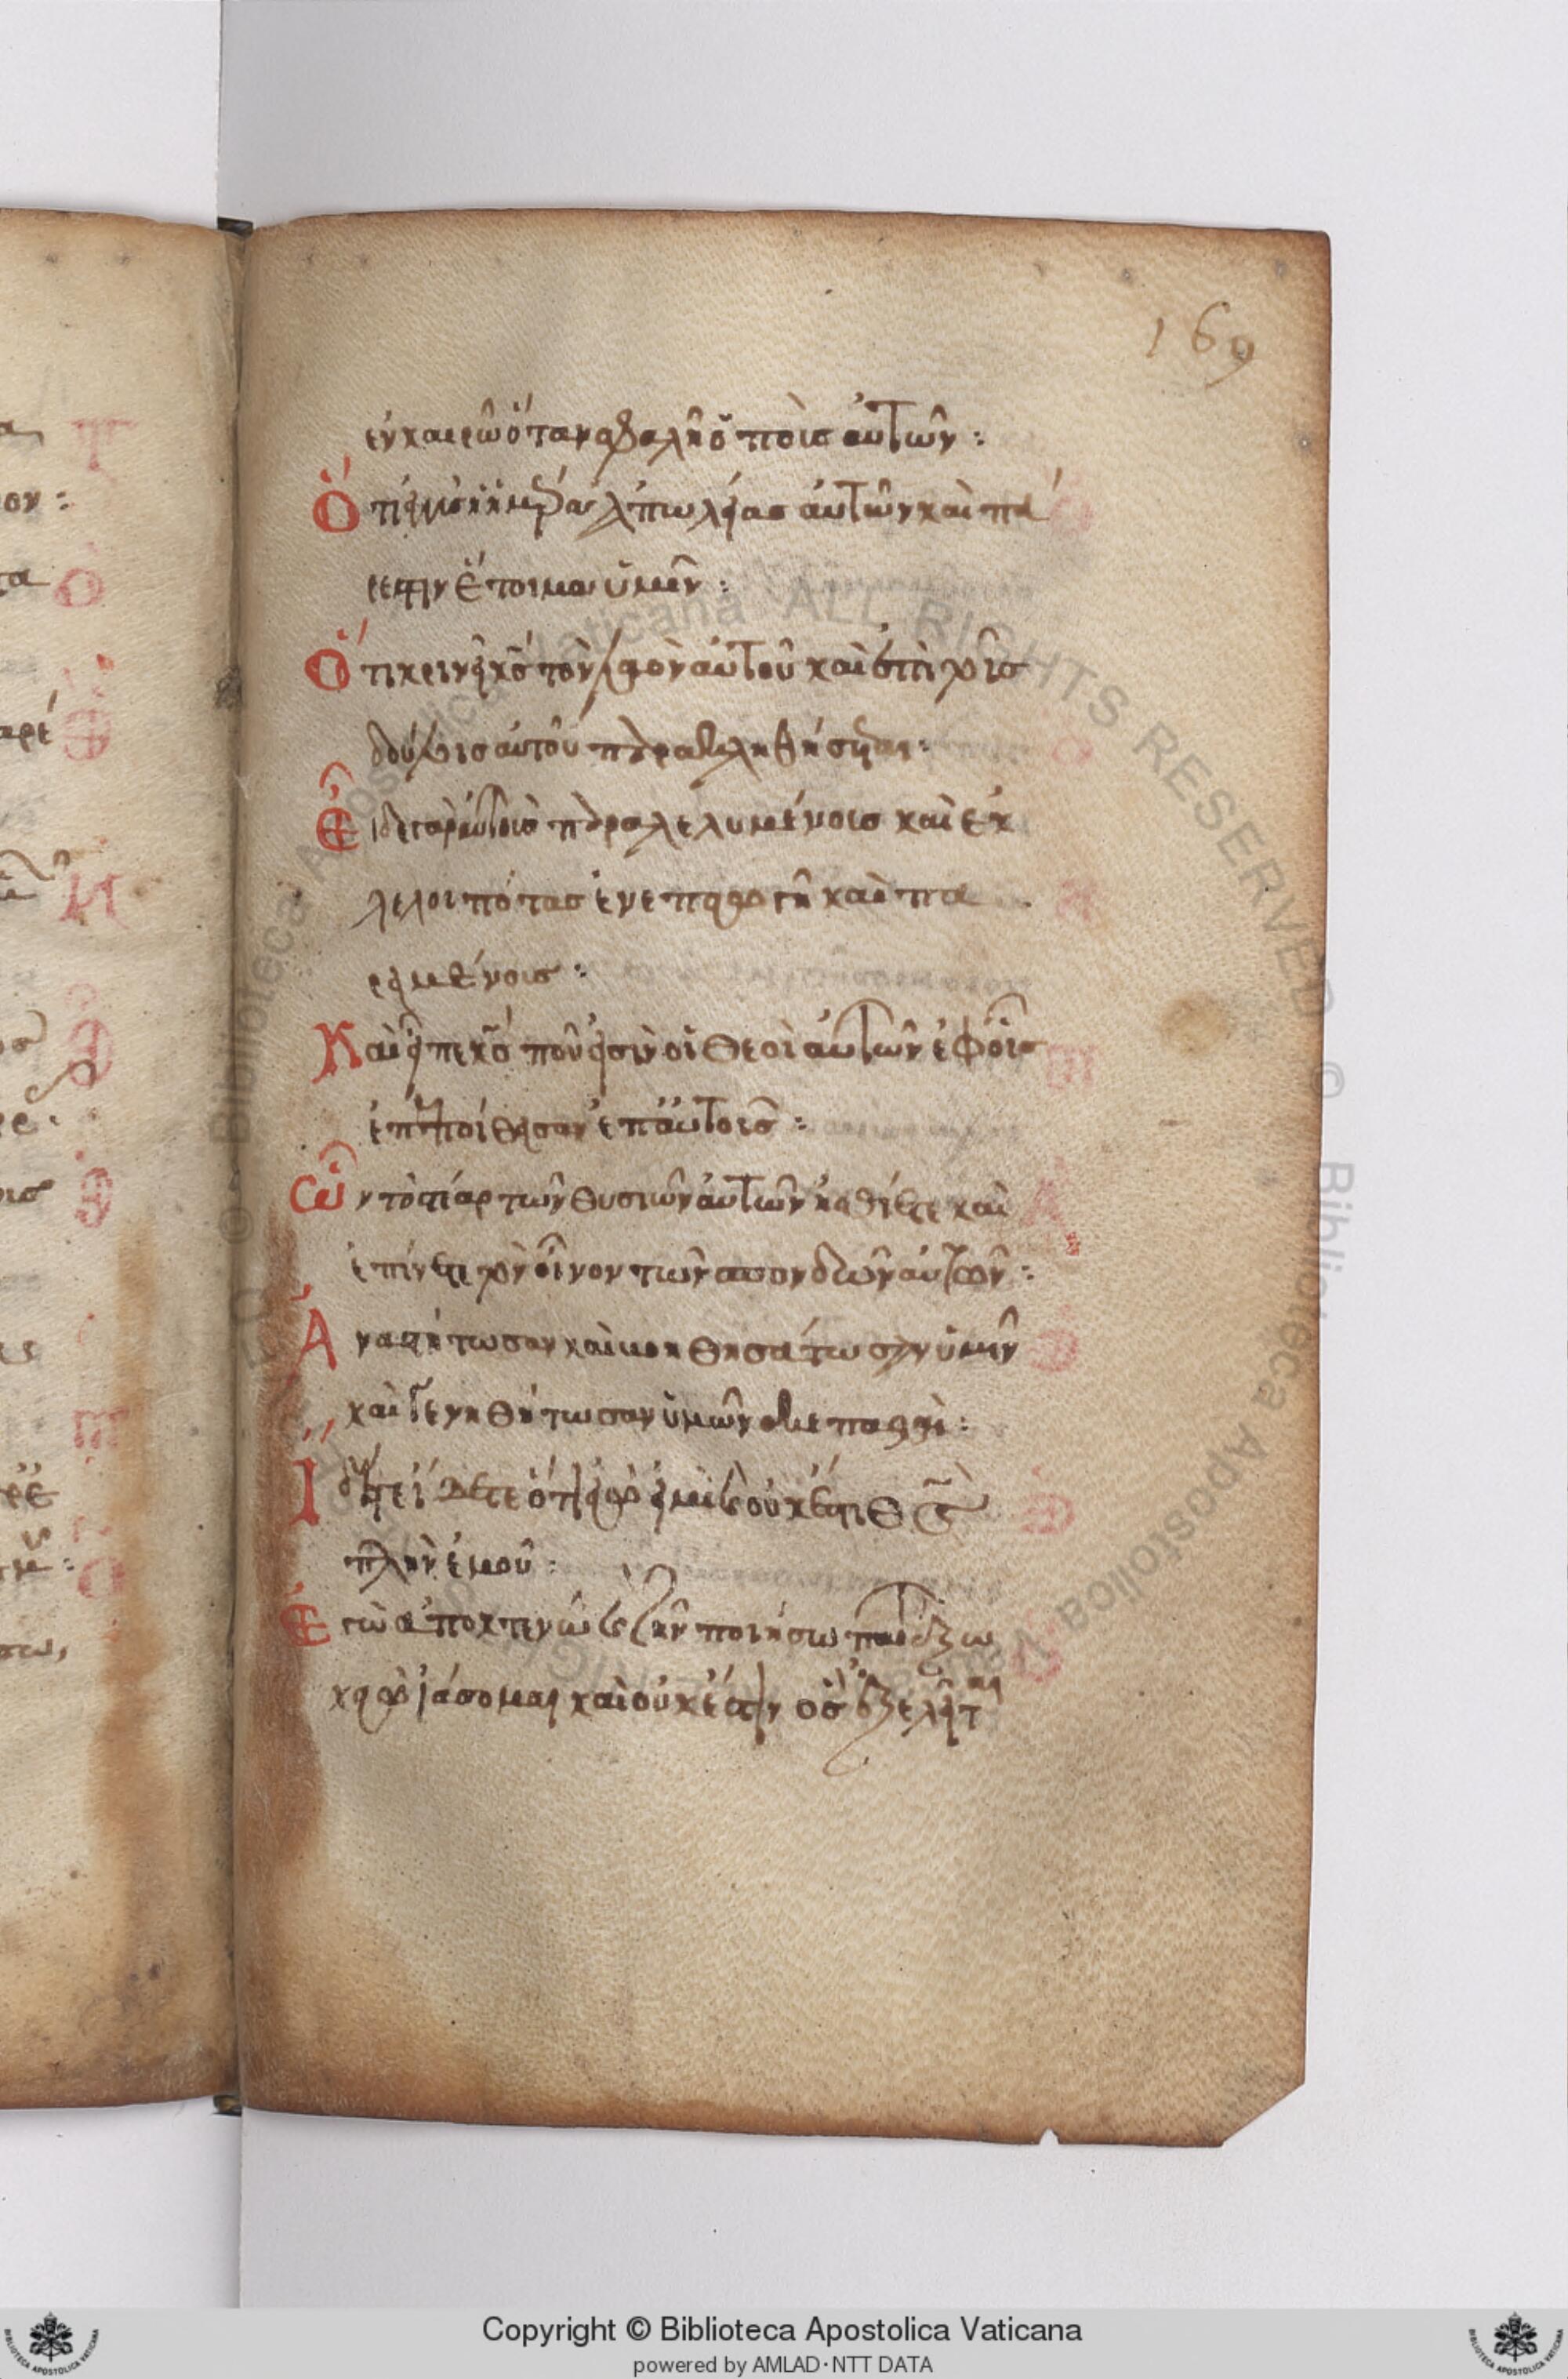 169
ἐν καιρῶ ὅταν σφαλῆ ὁ ποῦς αὐτῶν :
Ὅτι ἐγγὺς ἡ ἡμέρα ἀπωλείας αὐτῶν καὶ πά
ρεστιν ἕτοιμα ὑμῖν :
Ὅτι κρινεῖ κς τὸν λαὸν αὐτοῦ καὶ ἐπὶ τοῖς
δούλοις αὐτοῦ παρακληθήσεται :
Εἶδε γὰρ αὐτοὺς παραλελυμένους καὶ ἐκ
λελοιπότας ἐν ἐπαγωγῆ καὶ πα
ρειμένους :
Καὶ εἶπε κς ποῦ εἰσὶν οἱ θεοὶ αὐτῶν ἐφ οἷς
ἐπεποίθεισαν ἐπ αὐτοῖς :
Ὧν τὸ στέαρ τῶν θυσιῶν αὐτῶν ἠσθίετε καὶ
ἐπίνετε τὸν οἶνον τῶν σπονδῶν αὐτῶν :
Ἀναστήτωσαν καὶ βοηθησάτωσαν ὑμῖν
καὶ γενηθήτωσαν ὑμῶν σκεπασταὶ :
Ἴδετε ἴδετε ὅτι ἐγώ εἰμι καὶ οὐκ ἔστι θς
πλὴν ἐμοῦ :
Ἐγὼ ἀποκτενῶ καὶ ζῆν ποιήσω πατάξω
κἀγὼ ἰάσομαι καὶ οὐκ ἔστιν ὃς ἐξελεῖται
Copyright © Biblioteca Apostolica Vaticana
powered by AMLAD·NTT DATA